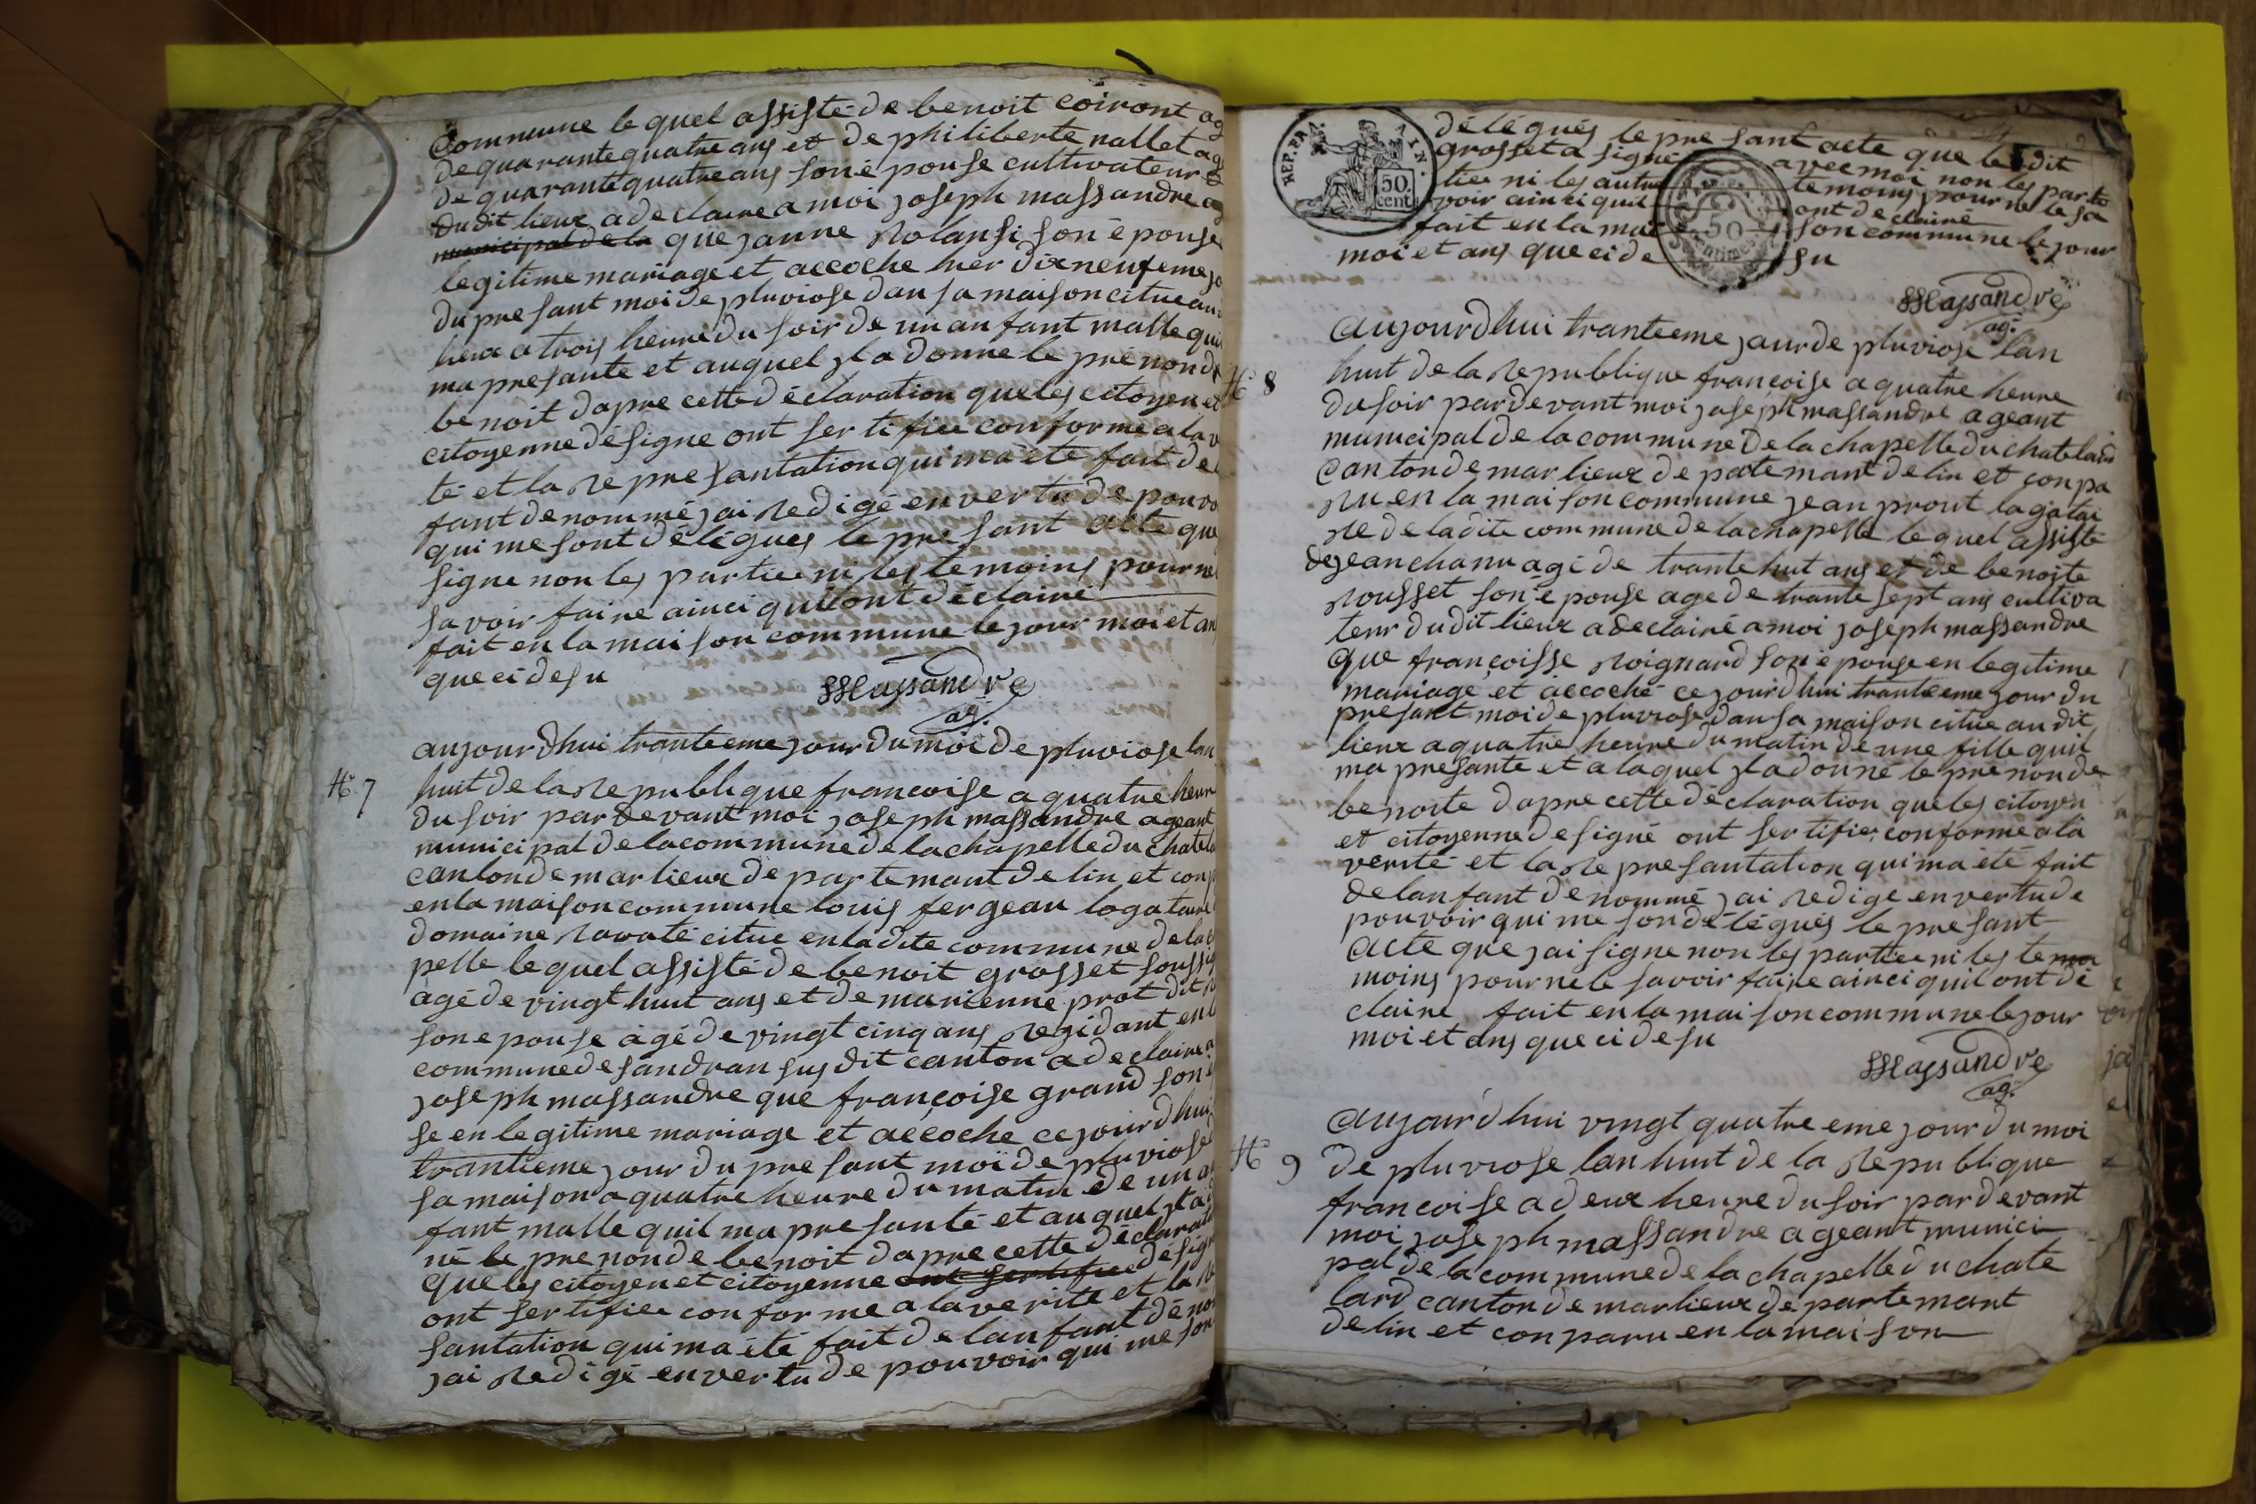 Commune le quel assisté de benoit coiront ag
de quarante quatre ans et de philiberte nallet ag
de quarante quatre ans son épouse cultivateur
dudit lieux a declaire a moi joseph massandre ag
municipal de la que janne Rolansi son épouse
legitime mariage et accoche hier dix neufeme jo
du presant moi de pluviose dan sa maison citue au
lieux a trois heure du soir de un anfant malle qui
ma presante et auquel jl a donne le prénon de
benoit dapre cette déclaration que les citoyen et
citoyenne désigne ont sertifiee conforme a la v
té et la Representation qui ma été fait de
fant denommé jai Redigé en vertu de pouvo
qui me sont délégues le presant acte que
signe non les partiee ni les temoins pour ne
savoir faire ainci quil ont déclaire
fait en la maison commune le jour moi et an
que ci desu
Massandre
ag.
aujourdhui tranteeme jour du moi de pluviose lan
N° 7
huit de la Republique francoise a quatre heur
du soir par devant moi joseph massandre ageant
municipal de la commune de la chapelle du chatela
canton de marlieux departemant de lin et conp
en la maison commune louis fergeau logataire
domaine Ravate citue en la dite commune de la
pelle le quel assisté de benoit grosset soussig
agé de vingt huit ans et de marienne prot dit
son epouse agé de vingt cinq ans Rezidant en l
commune de sandran sus dit canton a declaire a
joseph massandre que françoise grand son
se en legitime mariage et accoche ce jourdhui
trantieme jour du presant moi de pluviose
sa maison a quatre heure du matin de un a
fant malle quil ma presanté et auquel jl a
né le prenon de benoit dapre cette déclarat
que les citoyen et citoyenne ont sertifiee désig
ont sertifiee conforme a la verité et la Re
santation qui ma été fait de lanfant déno
jai Redigé en vertu de pouvoir qui me son
REP. FRA. AIN.
50.
cent.
50
centimes
délégués le presant acte que le dit
grosset a signé avec moi non les par
tiee ni les autre temoins pour ne le sa
voir ainci quil ont de claire
fait en la mai son commune le jour
moi et ans que ci de su
Massandre
ag.
aujourdhui tranteeme jour de pluviose lan
N° 8
huit de la Republique francoise a quatre heure
du soir par devant moi joseph massandre ageant
municipal de la commune de la chapelle du chatelard
canton de marlieux de partemant de lin et conpa
Ru en la maison commune jean prout lagatai
Re de la dite commune de la chapelle le quel assisté
de jean chanu agé de trante huit ans et de benoite
Rousset son épouse age de trante sept ans cultiva
teur du dit lieux a declairé a moi joseph massandre
que françoisse Roignard son épouse en legitime
mariage et accoché ce jourdhui tranteeme jour du
presant moi de pluviose dan sa maison citue au dit
lieux a quatre heure du matin de une fille quil
ma presante et a laquel jl a donné le prénon de
benoite dapre cette déclaration que les citoyen
et citoyenne designé ont sertifiee conforme a la
verité et la Represantation qui ma été fait
de lanfant dénommé jai Redige en vertu de
pouvoir qui me son délégués le presant
acte que jai signe non les partiee ni les temoi
moins pour ne le savoir faire ainci quil ont dé
claire fait en la maison commune le jour
moi et ans que ci desu
Massandre
ag.
aujourdhui vingt quatre eme jour du moi
N° 9
de pluviose lan huit de la Republique
francoise a deux heure du soir par devant
moi joseph massandre ageant munici
pal de la commune de la chapelle du chate
lard canton de marlieux departemant
de lin et conparu en la maison